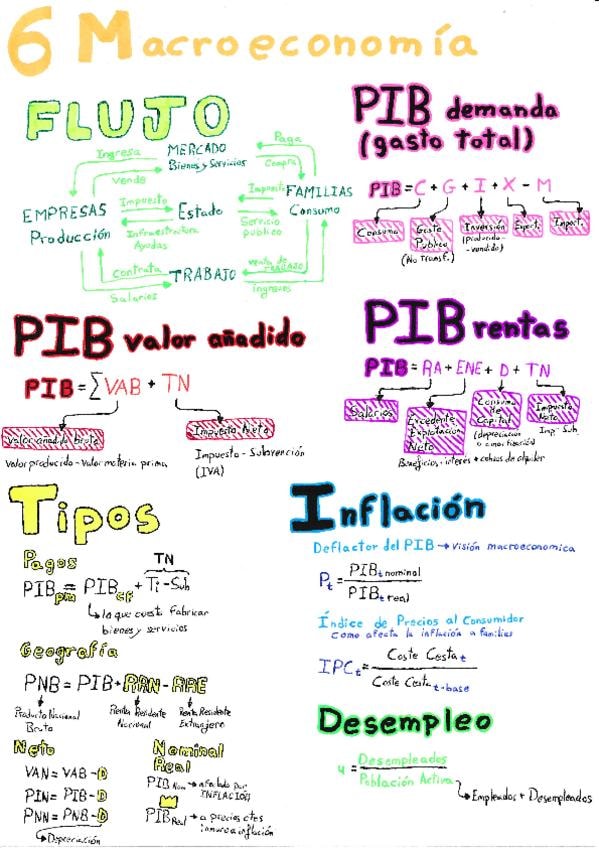 6 Macroeconomía
FLUJO
Ingresa
MERCADO
Bienes y Servicios
Paga
Compra
Vende
EMPRESAS
Producción
Impuesto
Estado
Impuesto
FAMILIAS
Consumo
Infraestructura
Ayudas
Servicio
publico
Contrata
TRABAJO
Salarios
ingresos
PIB demanda
(gasto total)
PIB = C + G + I + X - M
Consumo
Gasto
Publico
(No Transf.)
Inversión
(producido
-vendido)
Export.
Import.
PIB valor añadido
PIB = ∑VAB + TN
Valor añadido Bruto
Valor producido - Valor materia prima
Impuesto Neto
Impuesto - Subvención
(IVA)
PIB rentas
PIB = RA + ENE + D + TN
Salarios
Excedente
Explotación
Neto
Consumo
de
Capital
(depreciación
o amortización)
Impuesto
Neto
Imp - Sub.
Tipos
Pagos
TN
PIB pm = PIB cf + Ti - Sub
lo que cuesta fabricar
bienes y servicios
Geografía
PNB = PIB + RRN - RRE
Producto Nacional
Bruto
Renta Residente
Nacional
Renta Residente
Extranjero
Neto
VAN = VAB - D
PIN = PIB - D
PNN = PNB - D
Depreciación
Nominal
Real
PIB Nom → afectado por
INFLACIÓN
PIB Real → a precios ctes
Inflación
Deflactor del PIB → visión macroeconomica
Pt = PIBt nominal
PIBt real
Índice de Precios al Consumidor
como afecta la inflación a familias
IPCt = Coste Cesta t
Coste Cesta t-base
Desempleo
u = Desempleados
Población Activa
Empleados + Desempleados